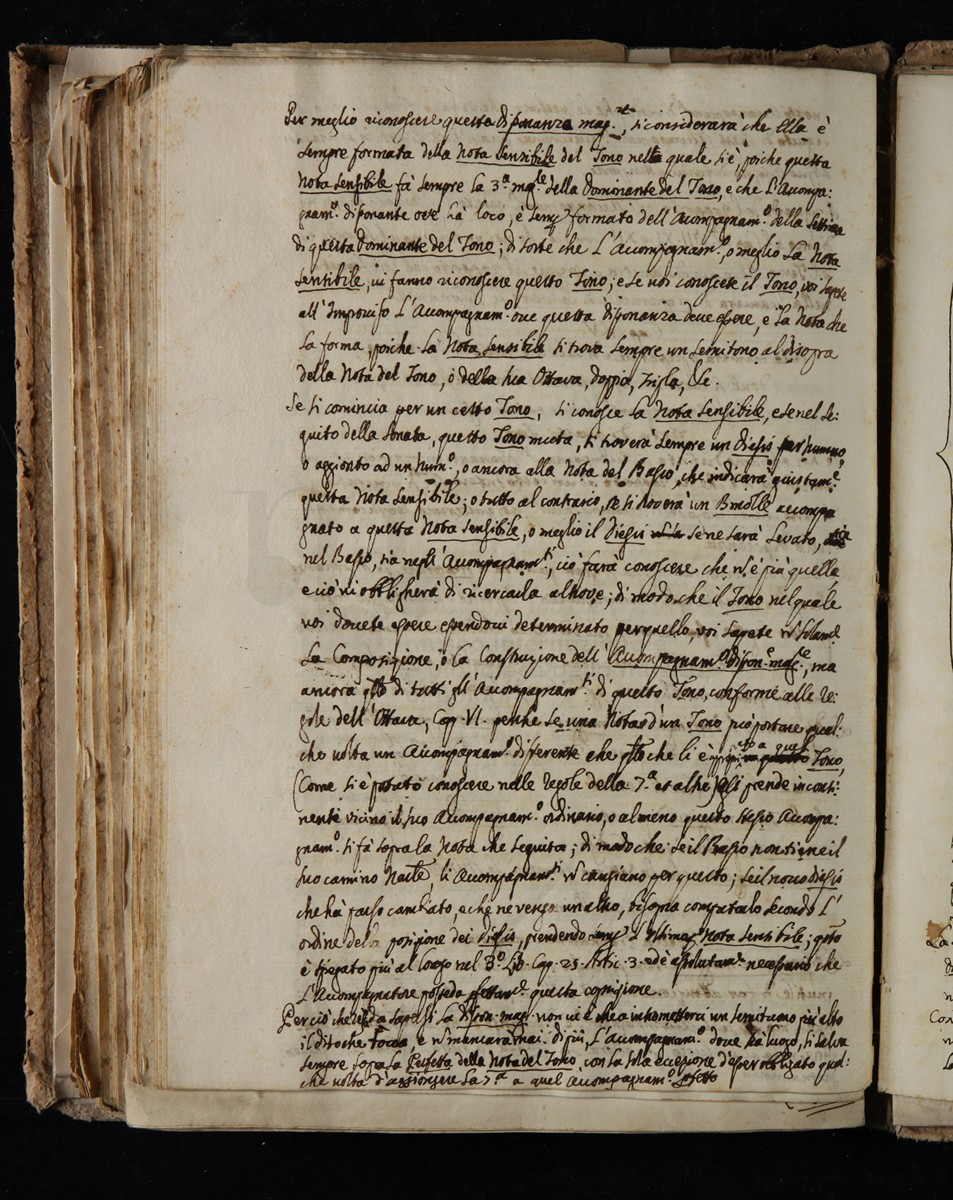 Per meglio riconoscere questa disonanza mag.re, si considerarà che Ella è
sempre formata della Nota Sensibile del Tono nella quale si è, poiche questa
Nota Sensibile fà sempre la 3.a mag.le della Dominante del Tono, e che L'Acompa:
gnam.o disonante ove hà loco, è semp formato dell'Acompagnam.o della Settima
di questa Dominante del Tono; di sorte che L'Acompagnam.o, o meglio La Nota
Sensibile, vi fanno riconoscere questo Tono; e se voi conoscete il Tono, voi sapete
all'Improviso L'Acompagnam.o ove questa disonanza deve essere, e la Nota che
la forma, poiche la Nota Sensibile si trova sempre un semitono al disopra
della Nota del Tono, ò della sua Ottava, doppia, Tripla, &c.
Se si comincia per un certo Tono, si conosce la Nota Sensibile, e se nel se:
guito della Sonata, questo Tono muta, si troverà sempre un diesis per numo,
o aggionto ad un num.o, o ancora alla Nota del Basso, che indicarà giustam.e
questa Nota Sensibile; o tutto al contrario, se si troverà un Bmolle acompa
gnato a questa Nota Sensibile, o meglio il Diesis se ne sarà Levato, sia
nel Basso, sia negli Acompagnam.ti, ciò farà conoscere che n è più quella
e ciò vi obbligherà di ricercarla altrove; di modo che il Tono nel quale
voi dovete essere essendovi determinato per quello, voi sapete n solam.e
La Composizione, o la Construzione dell'Acompagnam.o dison.e mag.le, ma
ancora qllo di tutti gl'Acompagnam.ti di questo Tono, conforme alle Re:
gole dell'Ottava, Cap. VI. perche se una Nota d'un Tono può portare qual:
che volta un Acompagnam.o differente che qllo che li è Tono,
(Come si è potuto conoscere nelle regole della 7.a et altre) Egli prende inconti:
nente vicino il suo Acompagnam.o ordinario, o almeno questo stesso Acompa:
gnam.o si fà sopra la Nota che seguita; di modo che se il Basso non tiene il
suo camino Nalle, li Acompagnam.ti n cangiano per questo; se il novo diesis
che hà fatto cambiato, e che ne venga un altro, bisogna computarlo secondo L'
ordine della posizione dei Diesis, prendendo semp L'Ultima Nota Sensibile; qsto
è spiegato più al longo nel 3.o Lib. Cap. 25. Artic. 3. ed è assolutam.e necessario che
L'Acompagnatore posseda pfettam.e questa cognisione.
Per ciò che riguarda la dison. mag. non vi è che a intromettervi un semituono più alto
il dito che tocca, e n mancarà mai. di più, L'acompagnam.o dove hà luogo, si salva
sempre sopra la Perfetta della Nota del Tono, con la sola eccezione d'esser obbligato qual:
che volta d'aggiongere La 7.a a quel Acompagnam.o pfetto